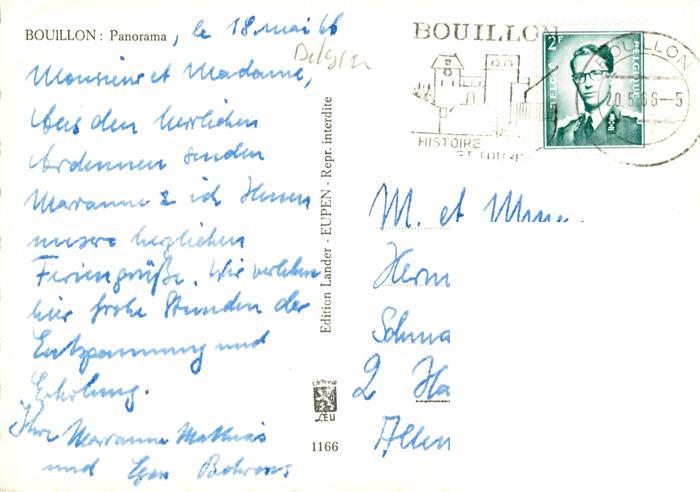 BOUILLON : Panorama, le 18. mai 66
Belgien
Monsieur et Madame,
Aus den herrlichen
Ardennen senden
Marianne & ich Ihnen
unsere herzlichen
Feriengrüße. Wir verleben
hier frohe Stunden der
Entspannung und
Erholung.
Ihre Marianne Mathias
und Egon
Edition Lander - EUPEN - Repr. interdite
1166
BOUILLON
HISTOIRE
2F
BELGIE BELGIQUE
BOUILLON
20.5.66-5
M. et Mme.
Herm
Schma
2 Ha
Allem